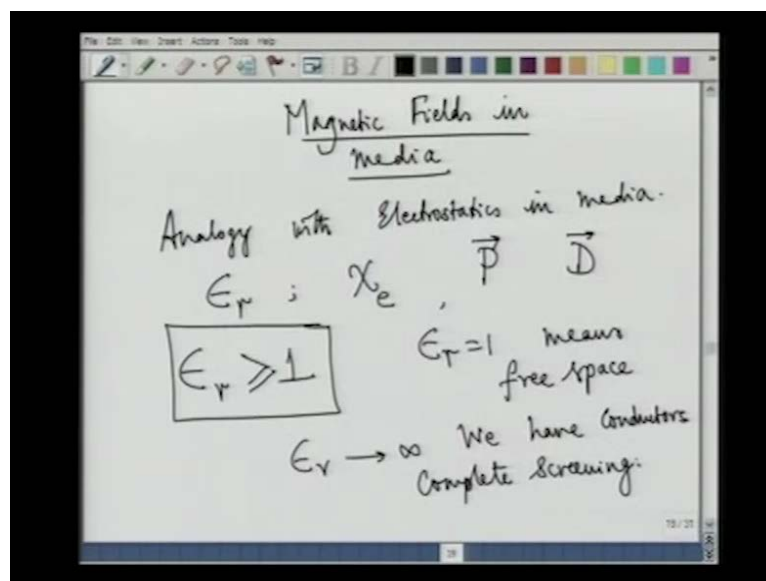 File Edit View Insert Actions Tools Help
B I
Magnetic Fields in
media
Analogy with Electrostatics in media.
ϵr ; χe , P⃗ D⃗
ϵr ⩾ 1
ϵr = 1 means
free space
ϵr → ∞ We have Conductors
Complete Screening.
19